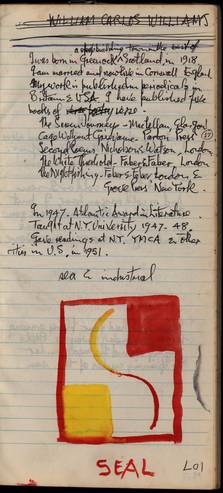 WILLIAM CARLOS WILLIAMS
a shipbuilding town in the west of
I was born in Greenock Scotland in 1918
I am married and now live in Cornwall England
My work is published in periodicals in
Britain & USA. I have published five
books of verse.
The Seven Journeys - MacLellan Glasgow
Cage Without Grievance. Parton Press
Second Poems, Nicholson & Watson, London
The White Threshold - Faber & Faber, London
The Nightfishing - Faber & Faber London &
Grove Press New York.
In 1947. Atlantic Award in Literature.
Taught at N.Y. University 1947-48.
Gave readings at N.Y. YMCA & other
cities in U.S. in 1951.
sea & industrial
SEAL